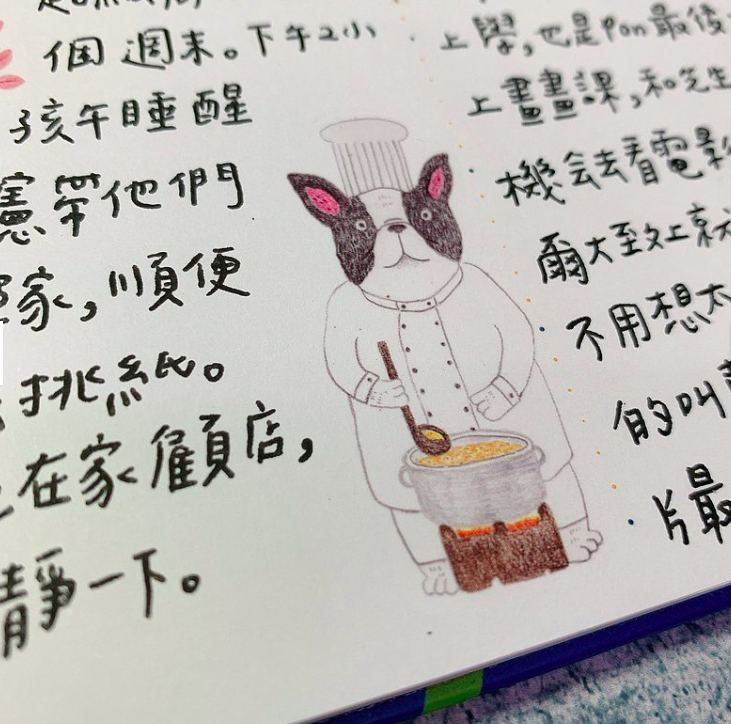 個週末。下午2小
子孩午睡醒
憲帶他們
家,順便
挑紙。
在家顧店,
靜一下。
上學,也是Pon最後
上畫畫課,和芝生
機会去看電影
爾大至上就
不用想太
的叫
片最